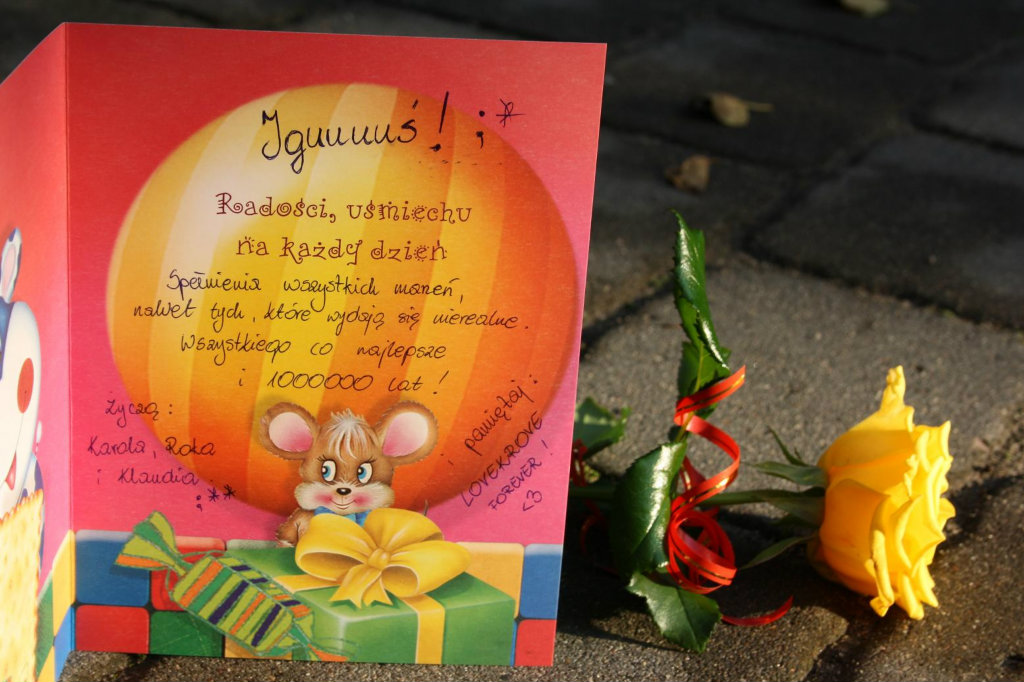 Iguuuuś! ;*
Radości, uśmiechu
na każdy dzień
Spełnienia wszystkich marzeń,
nawet tych, które wydają się nierealne.
Wszystkiego co najlepsze
i 1000000 lat!
Życzą:
Karola, Roka
i Klaudia ;**
pamiętaj:
LOVEKROVE
FOREVER!
<3